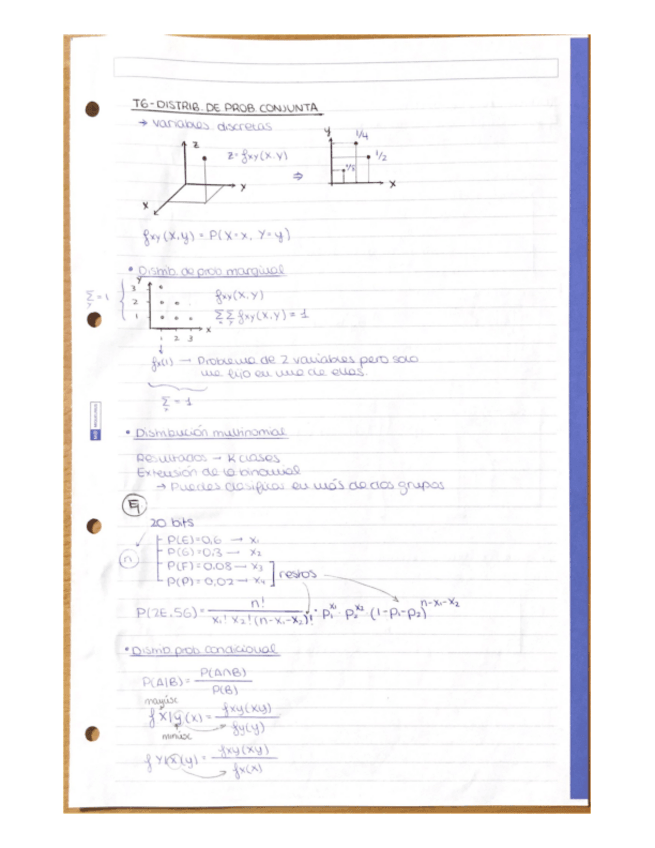 T6-DISTRIB. DE PROB CONJUNTA
→ Variables discretas
z
z = fxy(x,y)
y
x
⇒
y
1/4
1/2
x
fxy(x,y) = P(X=x, Y=y)
• Distrib. de prob marginal
Σ = 1
y
y
3
2
1
1 2 3
x
fxy(x,y)
ΣΣ fxy(x,y) = 1
fx(1) → Problema de 2 variables pero solo
me fijo en una de ellas.
Σ = 1
• Distribución multinomial
Resultados → K clases
Extensión de la binomial
→ Puedes clasificar en más de dos grupos
Ej
20 bits
n
P(E)=0,6 → x₁
P(G)=0,3 → x₂
P(F)=0,08 → x₃
P(P)=0,02 → x₄
restos
P(2E,5G) = n! / x₁! x₂! (n-x₁-x₂)! · p₁^x₁ · p₂^x₂ · (1-p₁-p₂)^n-x₁-x₂
• Distrib prob condicional
P(A|B) = P(A∩B) / P(B)
mayúsc
f X|y (x) = fxy(xy) / fy(y)
minúsc
f Y|x (y) = fxy(xy) / fx(x)